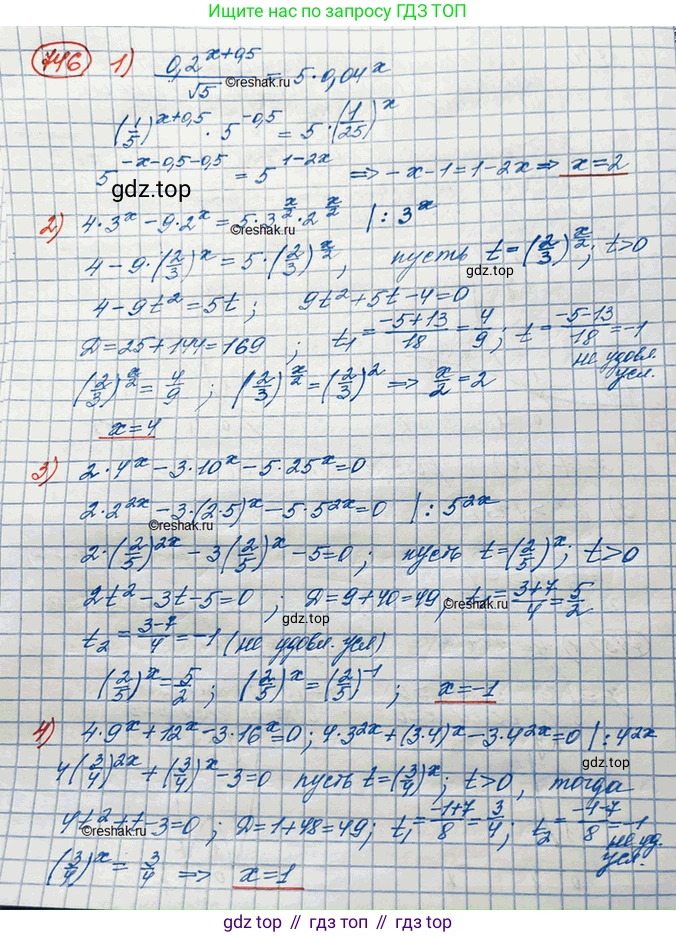 Больше решений по запросу ГДЗ ТОП
746 1) 0,2^(x+0,5)/√5 = 5·0,04^x
©reshak.ru
(1/5)^(x+0,5) · 5^(-0,5) = 5·(1/25)^x
5^(-x-0,5-0,5) = 5^(1-2x) ⇒ -x-1=1-2x ⇒ x=2
gdz.top
2) 4·3^x - 9·2^x = 5·3^(x/2)·2^(x/2) |: 3^x
©reshak.ru
4-9·(2/3)^x = 5·(2/3)^(x/2), пусть t=(2/3)^(x/2); t>0
gdz.top
4-9t²=5t; 9t²+5t-4=0
D=25+144=169; t₁=(-5+13)/18=4/9; t=(-5-13)/18=-1
не удовл. усл.
(2/3)^(x/2)=4/9; (2/3)^(x/2)=(2/3)^2 ⇒ x/2=2
x=4
3) 2·4^x - 3·10^x - 5·25^x=0
2·2^(2x) - 3·(2·5)^x - 5·5^(2x)=0 |: 5^(2x)
©reshak.ru
2·(2/5)^(2x) - 3(2/5)^x - 5=0; пусть t=(2/5)^x; t>0
2t²-3t-5=0; D=9+40=49; t₁=(3+7)/4=5/2
©reshak.ru
gdz.top
t₂=(3-7)/4=-1 (не удовл. усл)
(2/5)^x=5/2; (2/5)^x=(2/5)^(-1); x=-1
4) 4·9^x+12^x-3·16^x=0; 4·3^(2x)+(3·4)^x-3·4^(2x)=0 |: 4^(2x)
4(3/4)^(2x)+(3/4)^x-3=0 пусть t=(3/4)^x; t>0, тогда
4t²+t-3=0; D=1+48=49; t₁=(-1+7)/8=3/4; t₂=(-4-7)/8=-1
©reshak.ru
©reshak.ru
не уд. усл.
(3/4)^x=3/4 ⇒ x=1
gdz.top // гдз.топ // gdz.top // гдз.топ